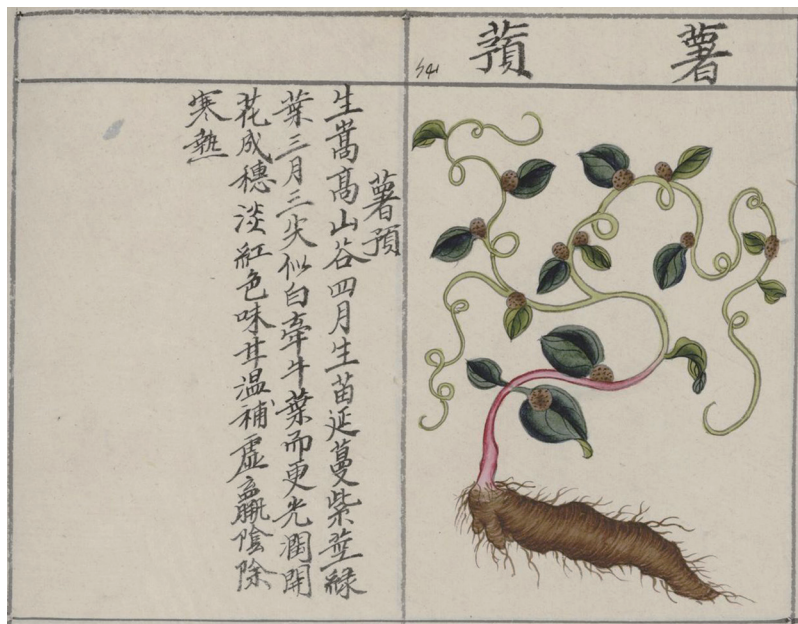 薯蕷
541
薯預
生嵩髙山谷四月生苗延蔓紫莖緑
葉三月三尖似白牽牛葉而更光潤開
花成穗淡紅色味甘温補虚羸除
寒熱